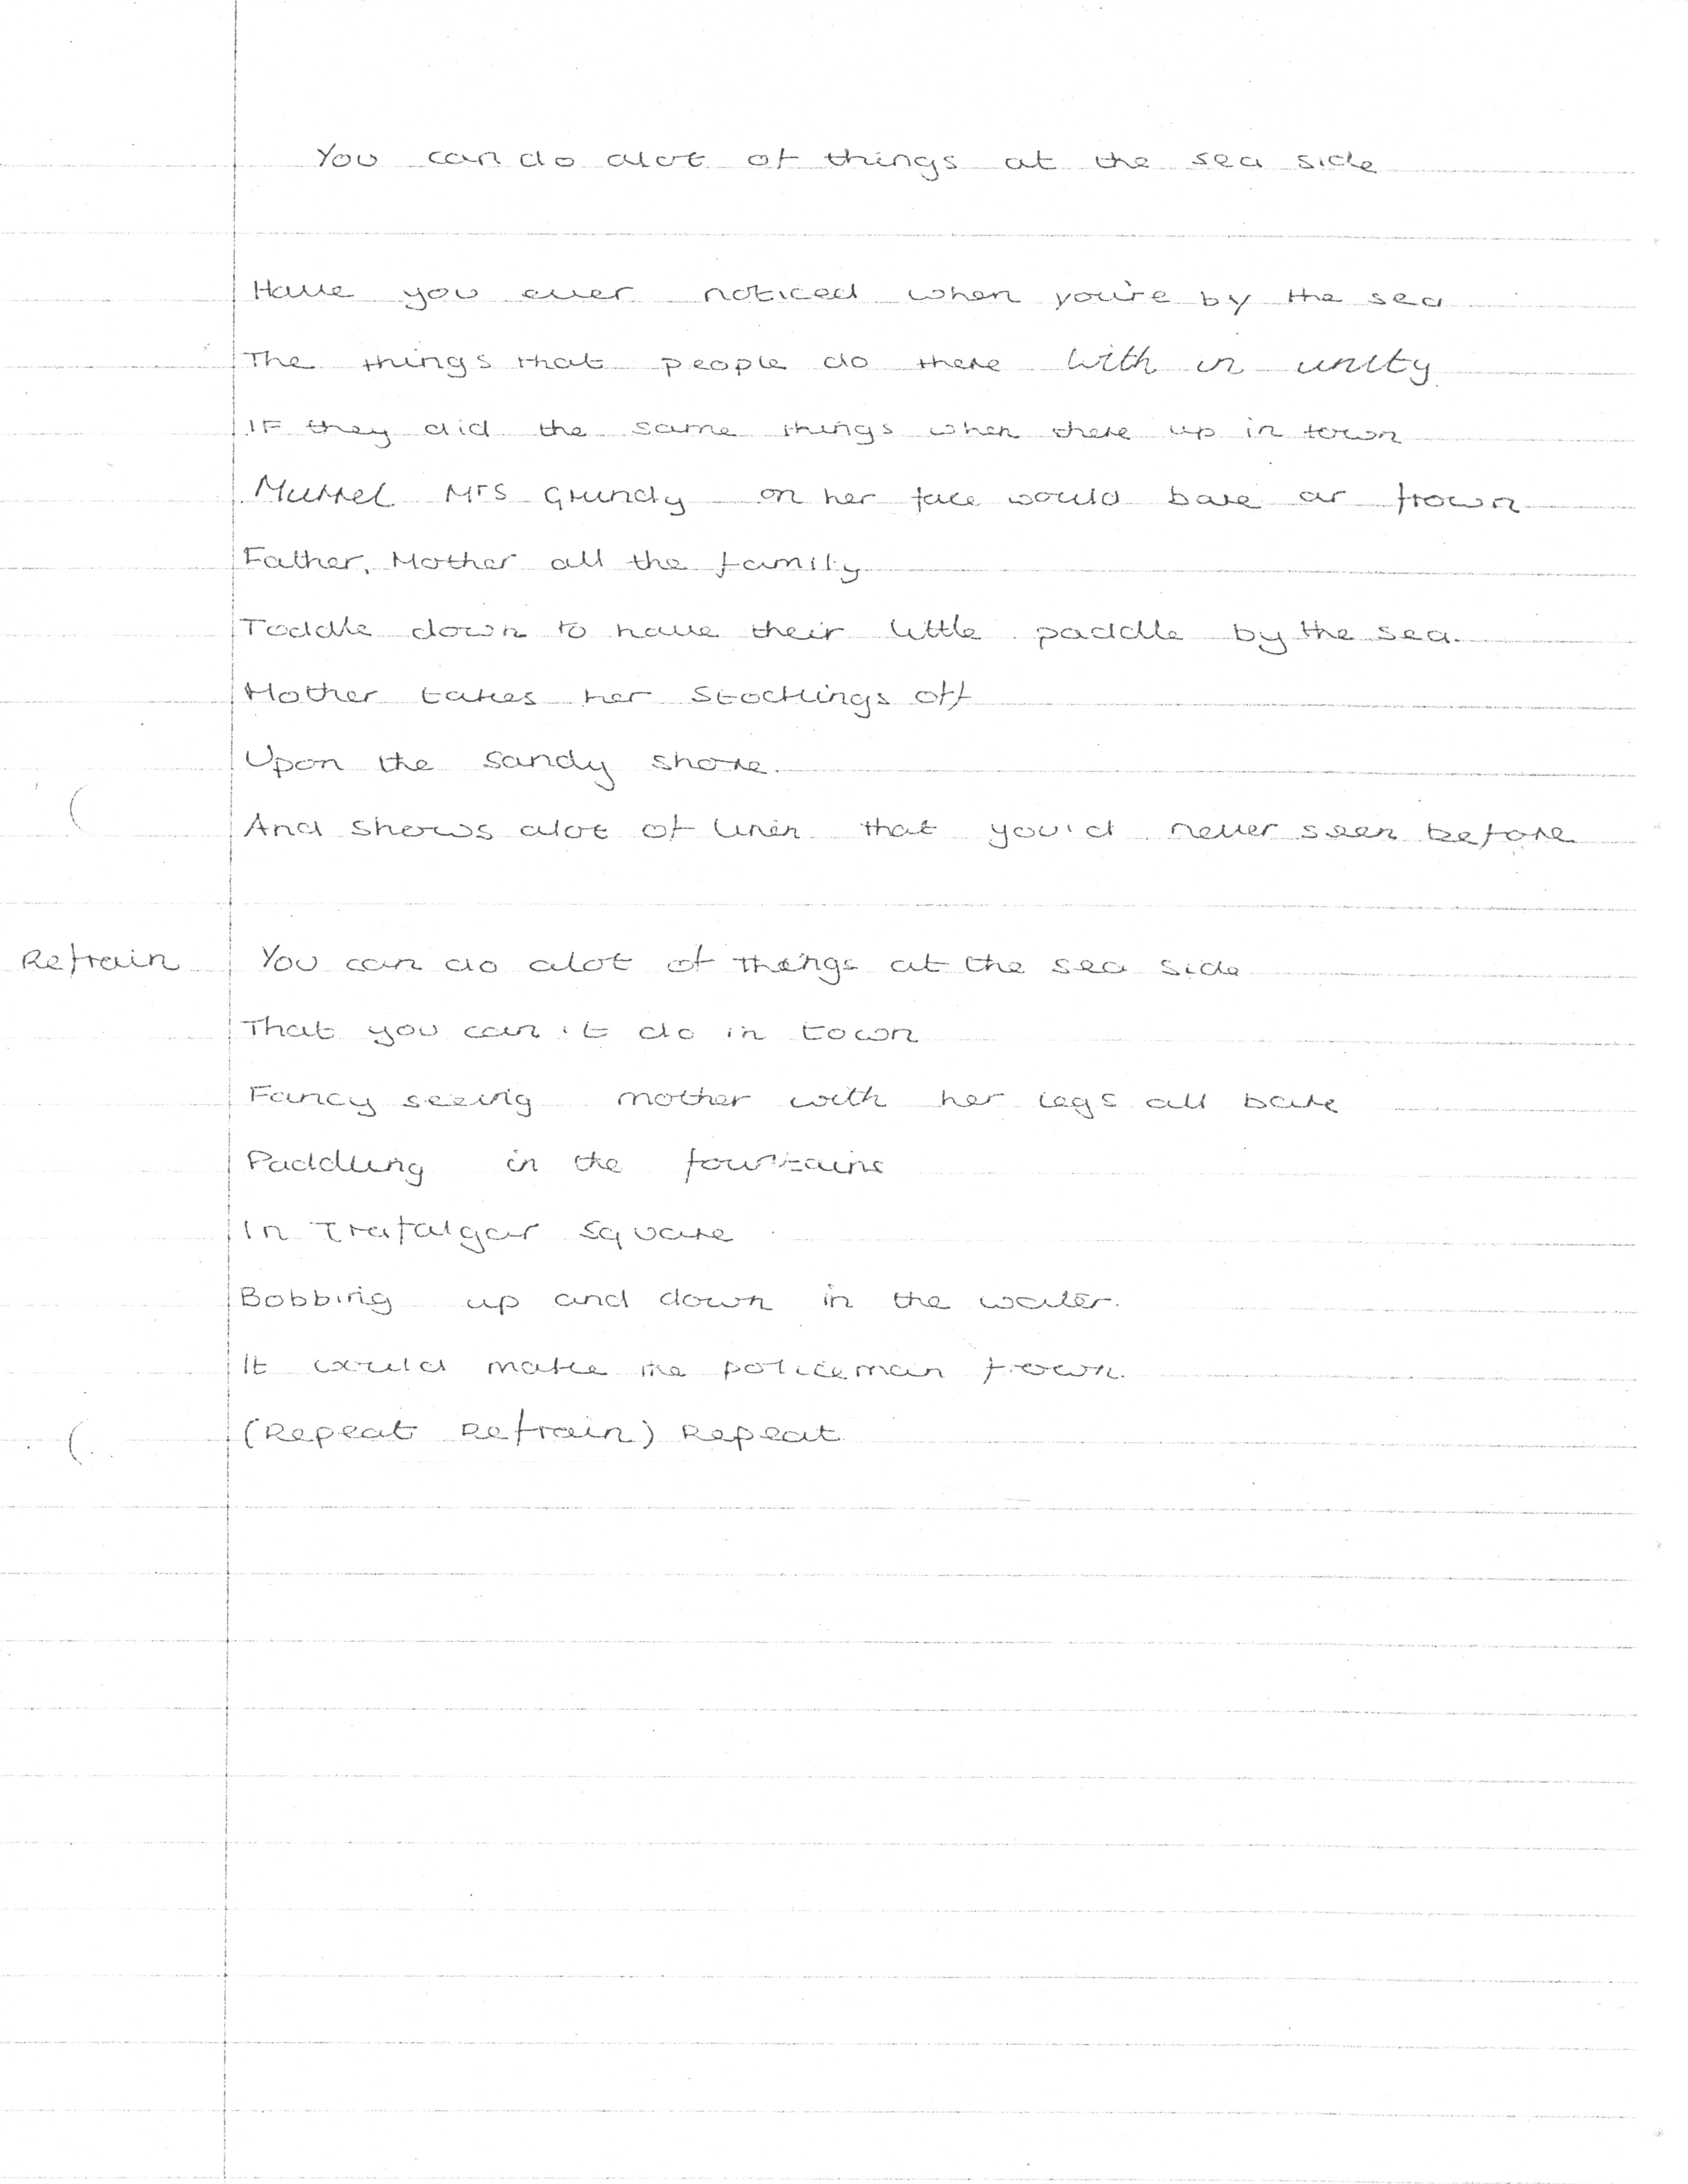 You can do alot of things at the sea side
Have you ever noticed when you're by the sea
The things that people do there with in unity
IF they did the same things when there up in town
Mrs Grundy on her face would bare ar frown
Father, Mother all the family
Toddle down to have their little paddle by the sea.
Mother takes her stockings off
Upon the sandy shore.
And shows alot of linen that you'd never seen before
Refrain You can do alot of things at the sea side
That you can't do in town
Fancy seeing mother with her legs all bare
Paddling in the fountains
In Trafalgar Square
Bobbing up and down in the water.
It would make the policeman frown.
(Repeat Refrain) Repeat